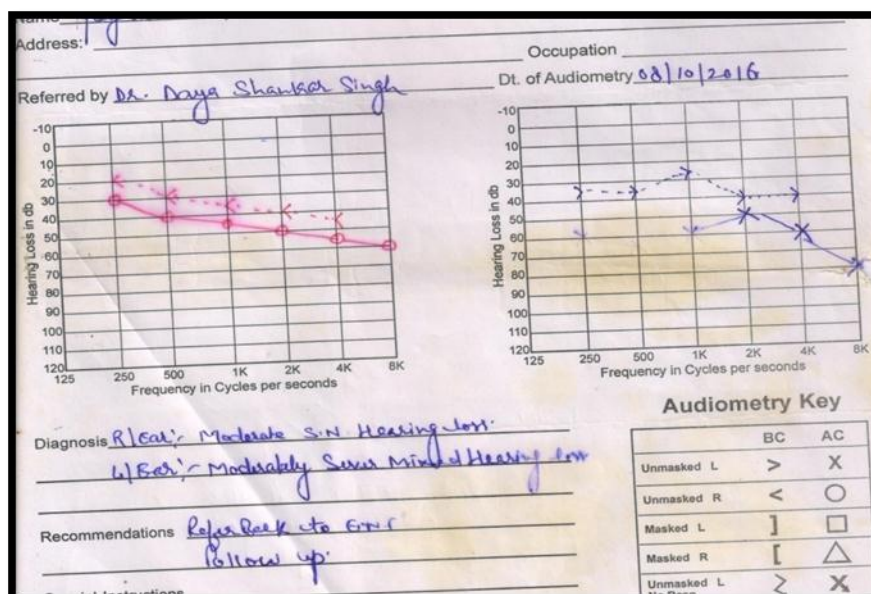 Name
Address:
Occupation
Referred by Dr. Daya Shankar Singh
Dt. of Audiometry 08/10/2016
-10
0
10
20
30
40
50
60
70
80
90
100
110
120
Hearing Loss in db
125 250 500 1K 2K 4K 8K
Frequency in Cycles per seconds
-10
0
10
20
30
40
50
60
70
80
90
100
110
120
Hearing Loss in db
125 250 500 1K 2K 4K 8K
Frequency in Cycles per seconds
Diagnosis R/Ear:- Moderate S.N. Hearing loss.
L/Ear:- Moderately Sever Mixed Hearing loss
Recommendations Refer Back to ENT
Follow up.
Audiometry Key
BC AC
Unmasked L > X
Unmasked R < O
Masked L ] □
Masked R [ △
Unmasked L